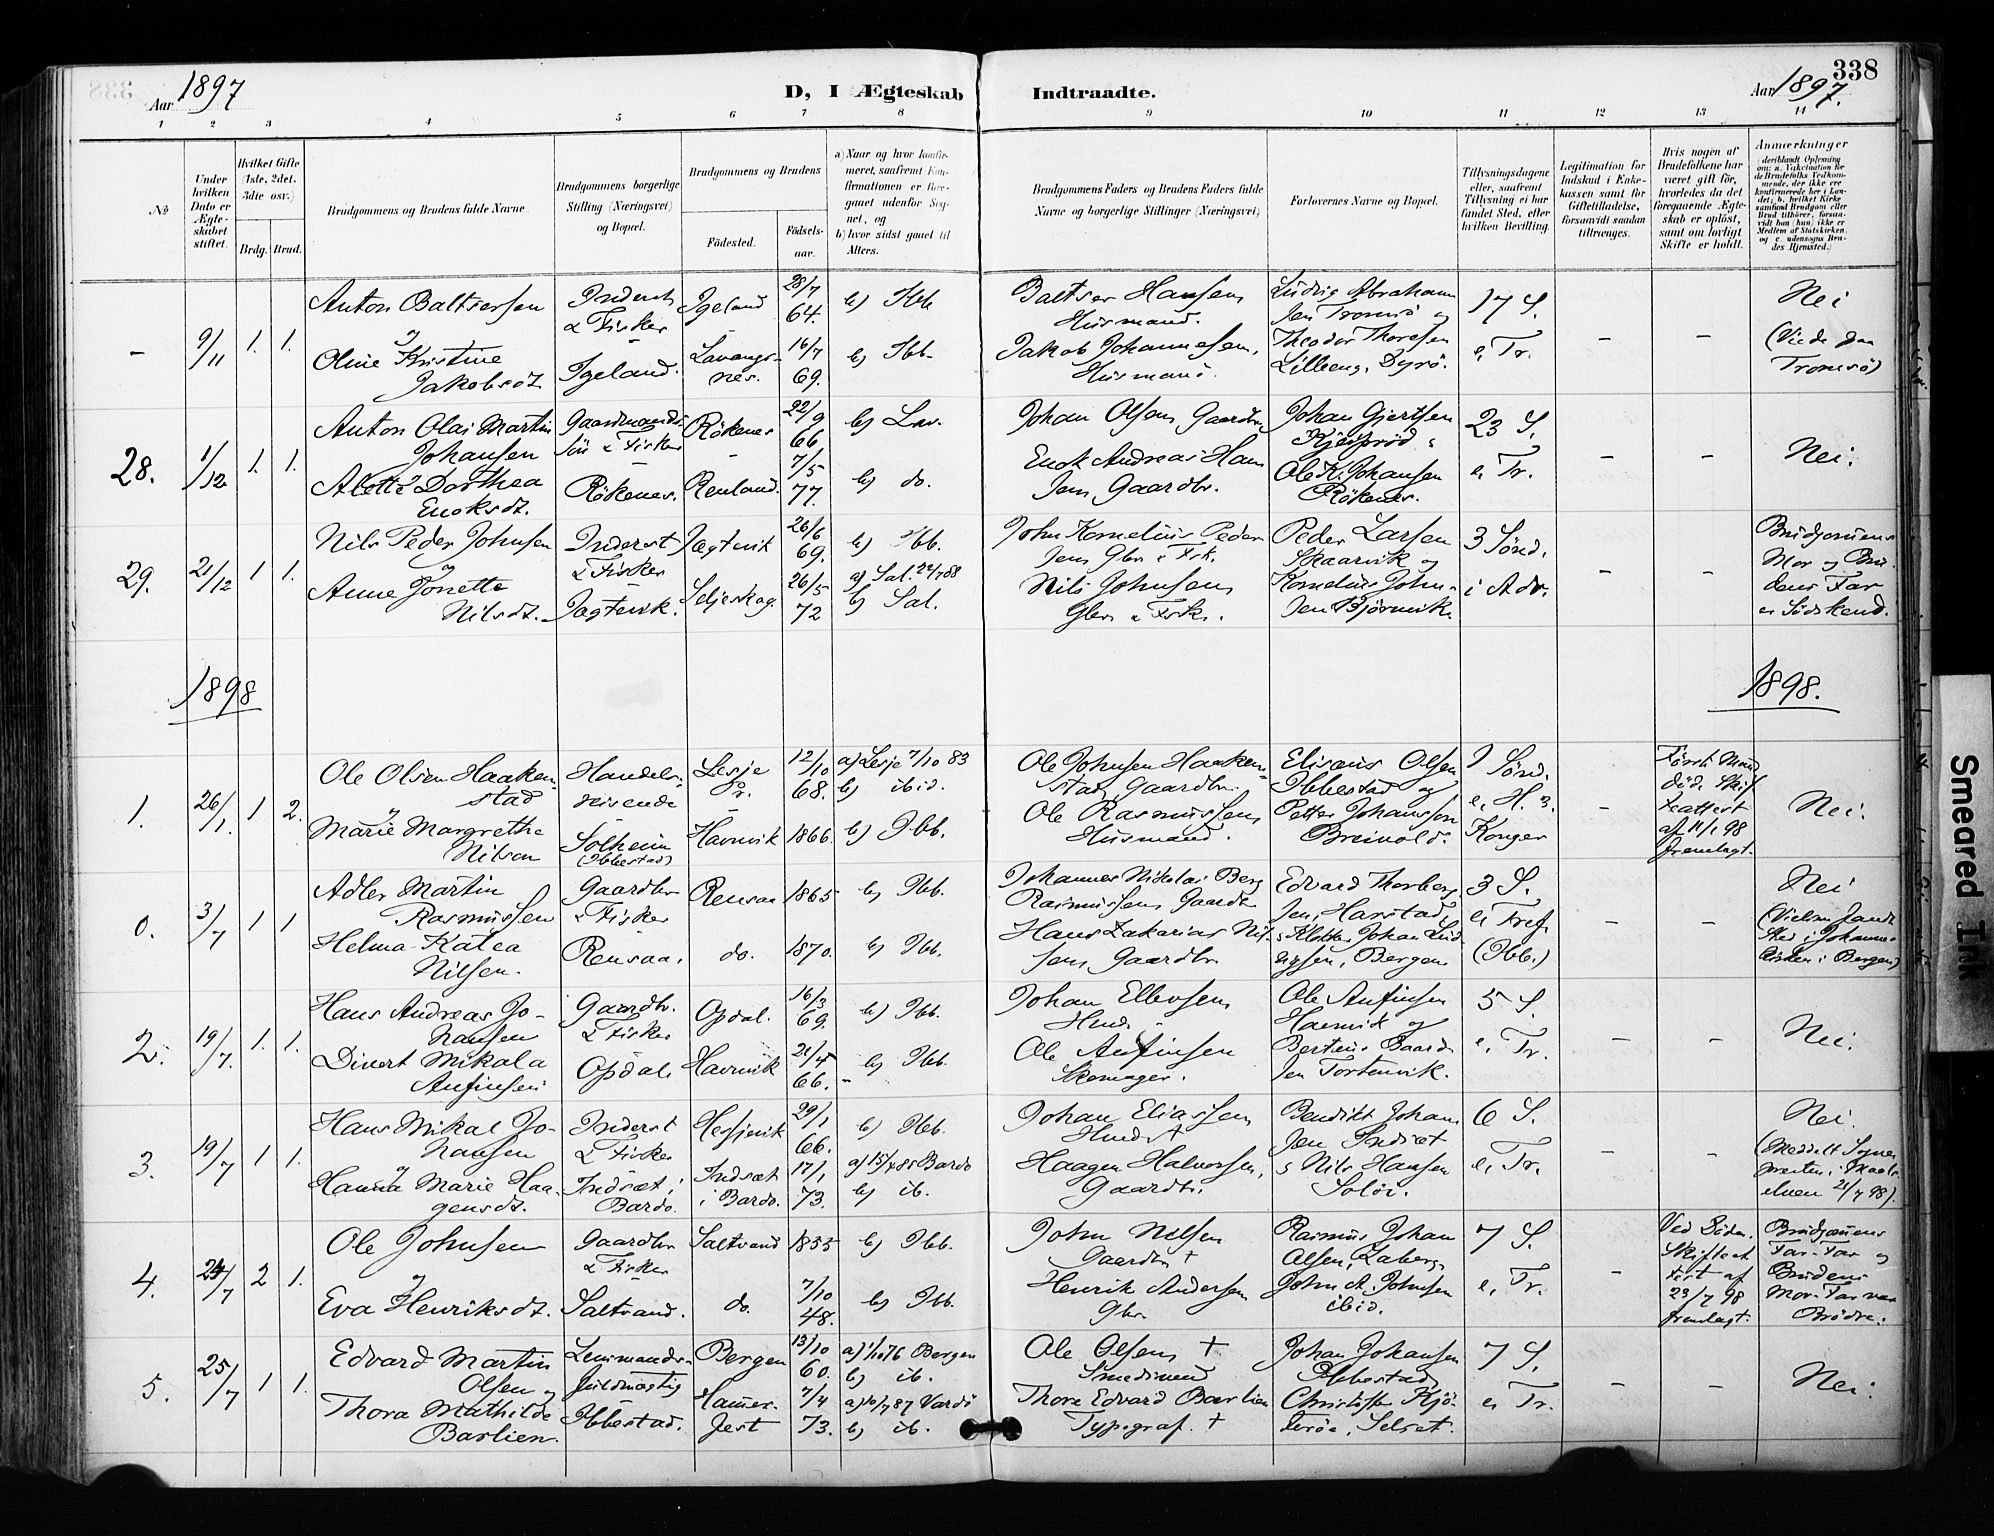 338
Aar 1897
D, I Ægteskab Indtraadte.
Aar 1897.
1 2 3 4 5 6 7 8 9 10 11 12 13 14
No
Under hvilken Dato er Ægteskabet stiftet.
Hvilket Gifte (1ste, 2det, 3die osv.)
Brdg. Brud.
Brudgommens og Brudens fulde Navne.
Brudgommens borgerlige Stilling (Næringsvei) og Bopæl.
Brudgommens og Brudens
Fødested.
Fødsels-aar.
a) Naar og hvor konfirmeret, saafremt Konfirmationen er foregaaet udenfor Sognet, og
b) hvor sidst gaaet til Alters.
Brudgommens Faders og Brudens Faders fulde Navne og borgerlige Stillinger (Næringsvei)
Forlovernes Navne og Bopæl.
Tillysningsdagene eller, saafremt Tillysning ei har fundet Sted, efter hvilken Bevilling.
Legitimation for Indskud i Enkekassen samt for Giftetilladelse, forsaavidt saadan tiltrænges.
Hvis nogen af Brudefolkene har været gift før, hvorledes da det foregaaende Ægteskab er opløst, samt om lovligt Skifte er holdt.
Anmerkninger
- 9/11 1. 1.
Anton Baltsersen
&
Oline Kristine
Jakobsdt.
Inderst
& Fisker
Igeland.
Igeland
Lavangs-
nes.
28/7
64.
16/7
69.
b) Ibb
b) Ibb.
Baltser Hansen,
Husmand.
Jakob Johannesen,
Husmand.
Ludvig Abraham
sen Tromsø og
Theodor Thoresen
Lilleeng, Dyrö.
17 S.
e. Tr.
-
-
Nei
(Viede den
Tromsö)
28. 1/12 1. 1.
Anton Olai Martin
Johansen
Alette Dorthea
Enoksdt.
Gaardmands
sön & Fisker
Rökenes.
Rökenes
Renland.
22/9
66
7/5
77.
b) Lav.
b) do.
Johan Olsen Gaardbr
Enok Andreas Han
sen, Gaardbr.
Johan Gjertsen
Ole K. Johansen
Rökenes.
23 S.
e. Tr.
-
-
Nei.
29. 21/12 1 1.
Nils Peder Johnsen
&
Anne Jonette
Nilsdt.
Inderst
& Fisker
Jægtevik.
Jægtevik
Seljeskog.
26/6
69.
26/5
72
b) Ibb.
b) Sal.
John Kornelius Peder
sen Gbr & Fsk.
Nils Johnsen
Gbr & Fisk.
Peder Larsen
Skaarvik og
Kornelius John-
sen Björnvik.
3 Sönd.
i Adv.
-
-
Brudgomens
Mor og Bru
dens Far
er Södskend.
1898
1898.
1. 26/1. 1 2.
Ole Olsen Haaken
stad
&
Marie Margrethe
Nilsen
Handels-
reisende
Solheim
(Ibbestad)
Lesje
Havnvik
12/10
68.
1866.
a) Lesje 7/10 83
b) ibid.
b) Ibb.
Ole Johnsen Haaken-
stad, Gaardbr.
Ole Rasmussen,
Husmand.
Elisæus Olsen
Ibbestad og
Petter Johansson
Breivold.
e. H. 3
Konger
-
Först. Mand
död. Skif
teattest
af 11/1 98
fremlagt.
Nei.
0. 3/7 1 1
Adler Martin
Rasmussen
Helma Katea
Nilsen.
Gaardbr
& Fisker
Rensaa.
Rensaa
do.
1865
1870.
b) Ibb.
b) Ibb.
Johannes Nikolai Berg
Rasmussen Gaardbr
Hans Zakarias Nil-
sen, Gaardbr
Edvard Thorberg
sen, Harstad,
Bergen.
3 S.
e. Tref.
(Ibb.)
-
-
Nei
2. 19/7. 1. 1.
Hans Andreas Jo-
hansen
Divert Mikala
Anfinsen
Gaardbr.
& Fisker
Opdal.
Opdal.
Havnvik
16/3
69.
21/4
66.
b) Ibb.
b) Ibb.
Johan Ellevsen
Ole Anfinsen
Skomager.
Ole Anfinsen
Havnvik og
Berteus Baard
sen Tortenvik.
5 S.
e. Tr.
-
-
Nei.
3. 19/7 1 1.
Hans Mikal Jo-
hansen
&
Hanna Marie Haa-
gensdt.
Inderst
& Fisker
Indset i
Bardo.
Hesjevik
Indset
i Bardo.
29/1
66.
17/1
73.
b) Ibb.
b) ib.
Johan Eliassen
Haagen Halvorsen,
Gaardbr.
Bendikt Johan
sen Indset
& Nils Hansen
Soløi.
6 S.
e. Tr.
-
-
Nei.
(Meddelt Sogne
presten i Maals
elven 21/7 98).
4. 24/7 2 1.
Ole Johnsen
&
Eva Henriksdt.
Gaardbr
& Fisker
Saltvand.
Saltvand
do.
1855
7/10
48.
b) Ibb.
b) Ibb.
John Nilsen
Gaardbr †
Henrik Andersen
Gbr.
Rasmus Johan
Olsen, Laberg,
John A. Johnsen
ibid.
7 S.
e. Tr.
-
Ved Döden.
Skifteat
test af
23/7 98
fremlagt.
Brudgomens
Far-Far og
Brudens
Mor-Far var
Brödre.
5. 25/7 1 1.
Edvard Martin
Olsen og
Thora Mathilde
Barlien.
Lensmands-
fuldmægtig
Ibbestad.
Bergen
Hamer-
fest
13/10
60.
7/4
73.
b) ib.
b) ib.
Ole Olsen †
Smedsvend
Thore Edvard Barlien
Typograf. †
Johan Johansen
Ibbestad
Christoffer Kjö-
teröe, Selset.
7 S.
e. Tr.
-
-
Nei.
Smeared Ink